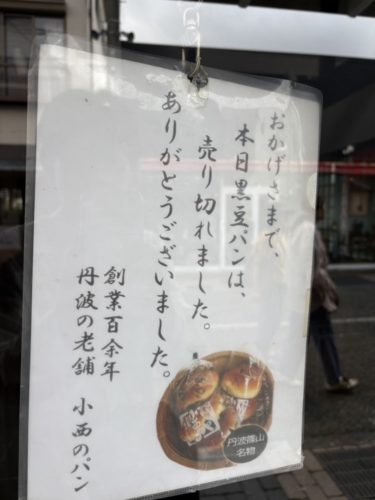 おかげさまで、
本日黒豆パンは、
売り切れました。
ありがとうございました。
創業百余年
丹波の老舗 小西のパン
丹波篠山
名物